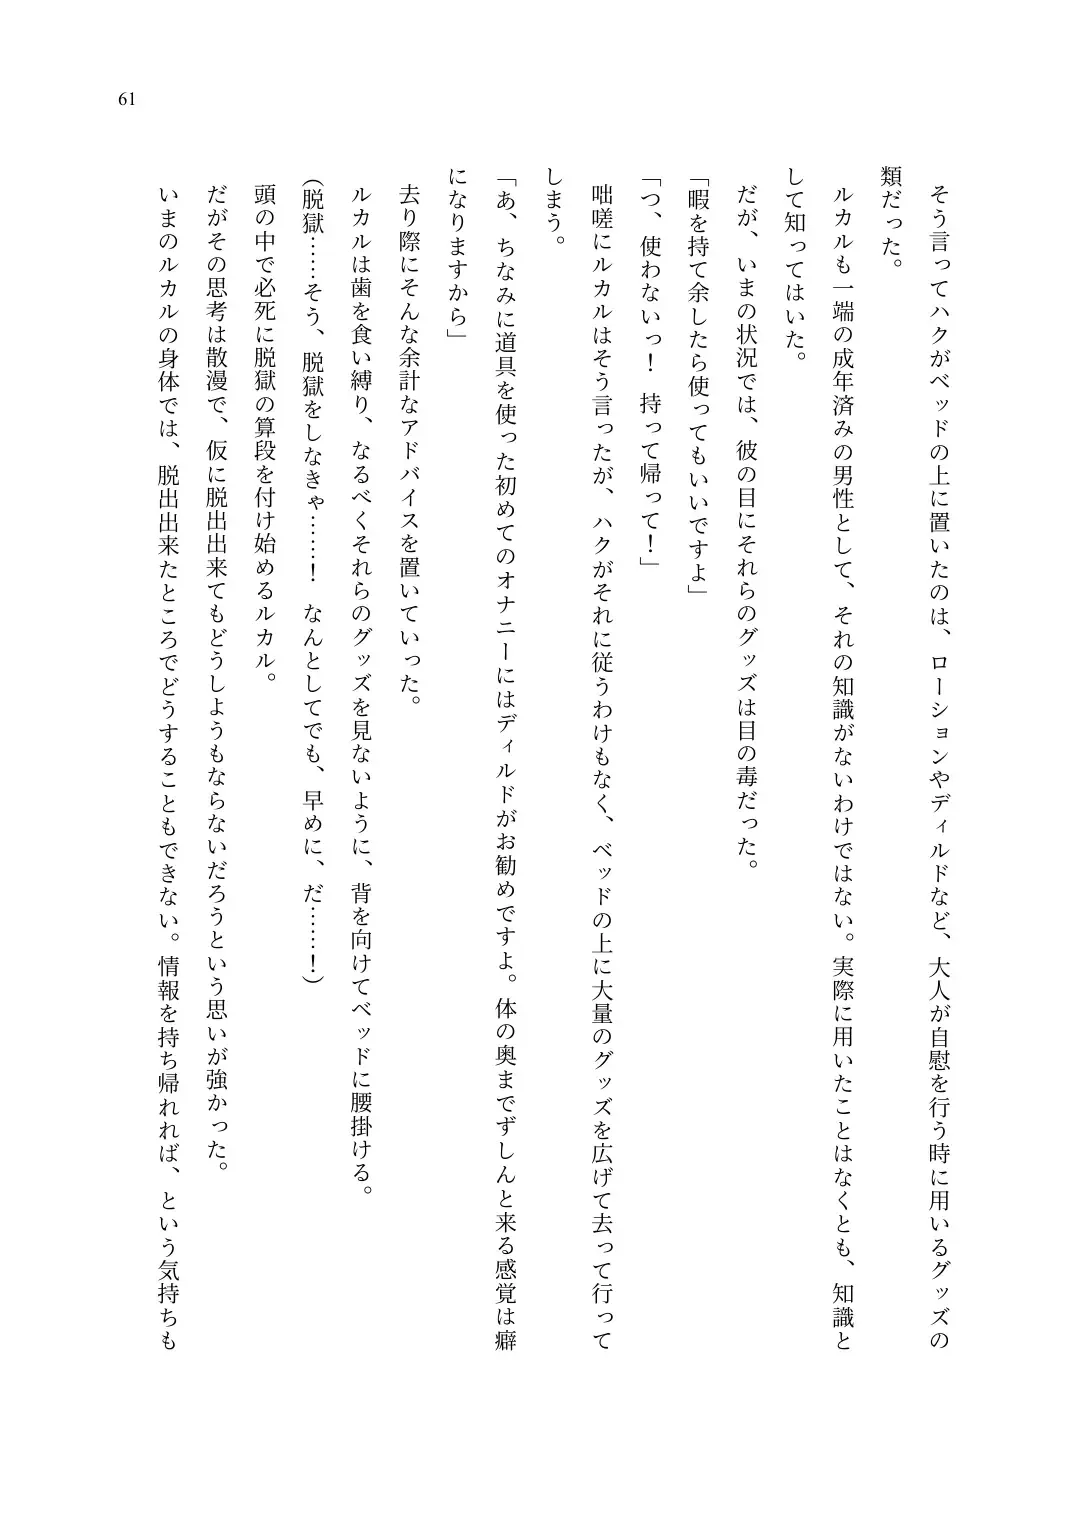 61
そう言ってハクがベッドの上に置いたのは、ローションやディルドなど、大人が自慰を行う時に用いるグッズの
類だった。
ルカルも一端の成年済みの男性として、それの知識がないわけではない。実際に用いたことはなくとも、知識と
して知ってはいた。
だが、いまの状況では、彼の目にそれらのグッズは目の毒だった。
「暇を持て余したら使ってもいいですよ」
「つ、使わないっ！　持って帰って！」
咄嗟にルカルはそう言ったが、ハクがそれに従うわけもなく、ベッドの上に大量のグッズを広げて去って行って
しまう。
「あ、ちなみに道具を使った初めてのオナニーにはディルドがお勧めですよ。体の奥までずしんと来る感覚は癖
になりますから」
去り際にそんな余計なアドバイスを置いていった。
ルカルは歯を食い縛り、なるべくそれらのグッズを見ないように、背を向けてベッドに腰掛ける。
（脱獄……そう、脱獄をしなきゃ……！　なんとしてでも、早めに、だ……！）
頭の中で必死に脱獄の算段を付け始めるルカル。
だがその思考は散漫で、仮に脱出出来てもどうしようもならないだろうという思いが強かった。
いまのルカルの身体では、脱出出来たところでどうすることもできない。情報を持ち帰れれば、という気持ちも